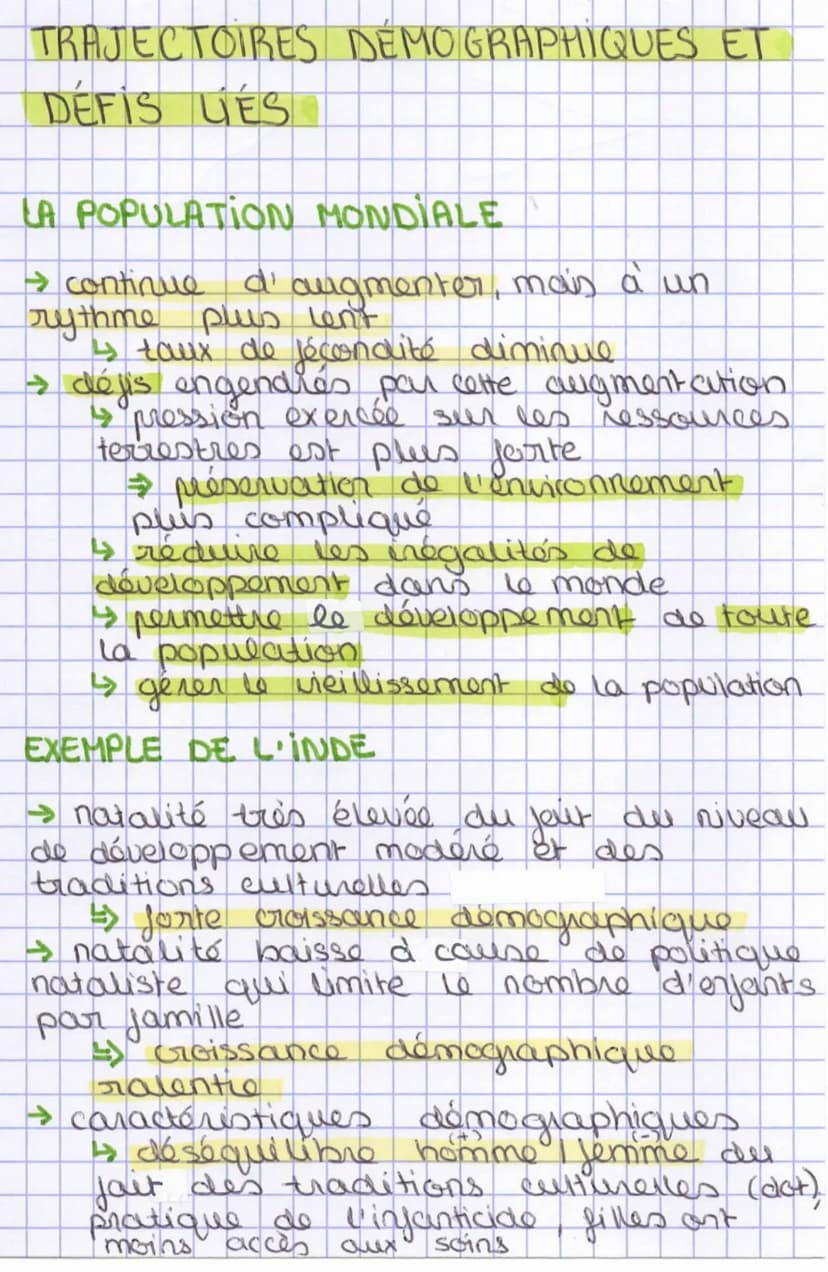 TRAJECTOIRES DÉMOGRAPHIQUES ET
DÉFIS LIÉS
LA POPULATION MONDIALE
→ continue d'augmenter, mais à un
rythme plus lent
↳ taux de fécondité diminue
→ défis engendrés par cette augmentation
↳ pression exercée sur les ressources
terrestres est plus forte
⇒ préservation de l'environnement
plus compliqué
↳ réduire les inégalités de
développement dans le monde
↳ permettre le développement de toute
la population
↳ gérer le vieillissement de la population
EXEMPLE DE L'INDE
→ natalité très élevée du fait du niveau
de développement modéré et des
traditions culturelles
↳ forte croissance démographique
→ natalité baisse à cause de politique
nataliste qui limite le nombre d'enfants
par famille
↳ croissance démographique
ralentie
→ caractéristiques démographiques
↳ déséquilibre homme (+) / femme (-) du
fait des traditions culturelles (dot),
pratique de l'infanticide, filles ont
moins accès aux soins